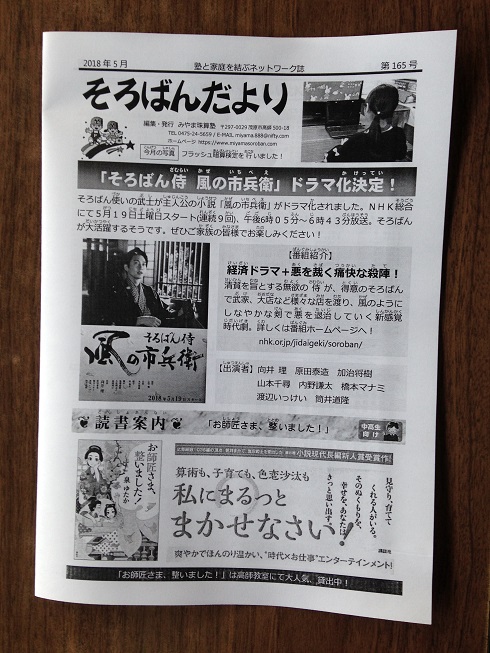 2018年5月
塾と家庭を結ぶネットワーク誌
第165号
そろばんだより
編集・発行 みやま珠算塾
〒297-0029 茂原市高師500-18
TEL 0475-24-5659 / E-MAIL miyama.888@nifty.com
ホームページ https://www.miyamasoroban.com
今月の写真 フラッシュ暗算検定を行いました!
「そろばん侍 風の市兵衛」ドラマ化決定!
そろばん使いの武士が主人公の小説「風の市兵衛」がドラマ化されました。NHK総合
にて5月19日土曜日スタート(連続9回)、午後6時05分～6時43分放送。そろばん
が大活躍するそうです。ぜひご家族の皆様でお楽しみください!
【番組紹介】
経済ドラマ+悪を裁く痛快な殺陣!
清貧を旨とする無欲の侍が、得意のそろばん
で武家、大店など様々な店を渡り、風のように
しなやかな剣で悪を退治していく新感覚
時代劇。詳しくは番組ホームページへ!
nhk.or.jp/jidaigeki/soroban/
そろばん侍
風の市兵衛
2018年5月19日
【出演者】
向井 理 原田泰造 加治将樹
山本千尋 内野謙太 橋本マナミ
渡辺いっけい 筒井道隆
読書案内
「お師匠さま、整いました!」
中高生
向け
お師匠さま、
整いました!
泉 ゆたか
小説現代長編新人賞受賞作!
算術も、子育ても、色恋沙汰も
私にまるっと
まかせなさい!
見守り、育てて
くれる人がいる。
そのぬくもりを、
幸せを、あなたは
きっと思い出す。
講談社
爽やかでほんのり温かい、“時代×お仕事”エンターテインメント!
「お師匠さま、整いました!」は高師教室にて大人気、貸出中!